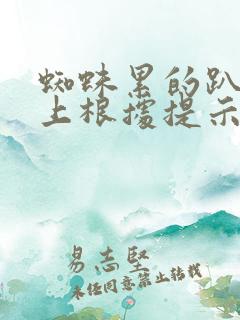 蜘蛛累的趴
上根據提示
易志堅
未经同意禁止转载